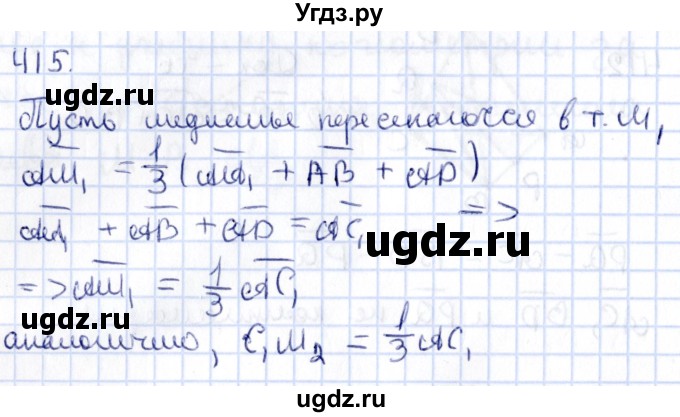 Угдз.ру
415.
ugdz.ru
Пусть медианы пересекаются в т. M₁
AM₁ = 1/3 (AA₁ + AB + AD)
AA₁ + AB + AD = AC₁ =>
ugdz.ru
=> AM₁ = 1/3 AC₁
ugdz.ru
аналогично, C₁M₂ = 1/3 AC₁